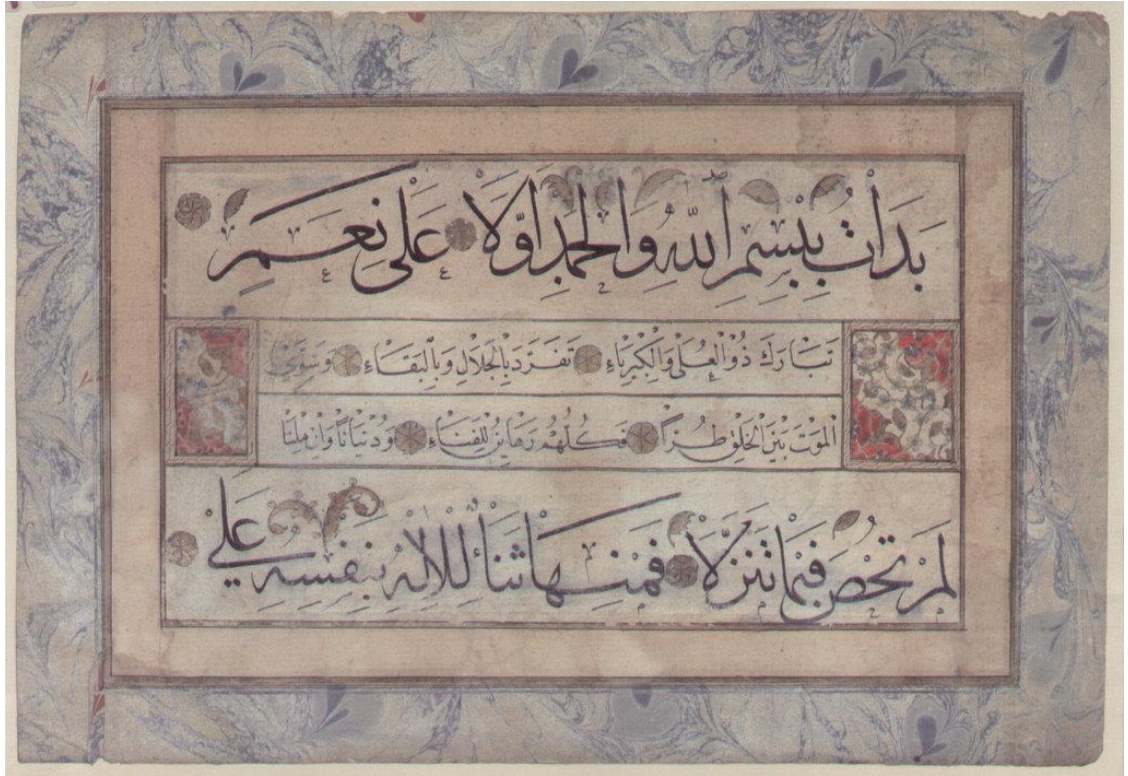 بَدَأْتُ بِبِسْمِ اللهِ وَالحَمْدِ اَوَّلَا عَلَى نِعَمٍ
تَبَارَكَ ذُوْالْعُلَى وَالْكِبْرِيَاءِ تَفَرَّدَ بِالْجَلَالِ وَبِالْبَقَاءِ وَسَوَّى
الْمَوْتَ بَيْنَ الْخَلْقِ طُرًّا فَكُلُّهُمْ رَهَايِنُ لِلْفَنَاءِ وَدُنْيَانَا وَاِنْ مِلْنَا
لَمْ تُحْصَ فِيْمَا تَنَزَّلَا فَمِنْهَا ثَنَاءٌ لِلْاِلٰهِ بِنَفْسِهِ عَلَى